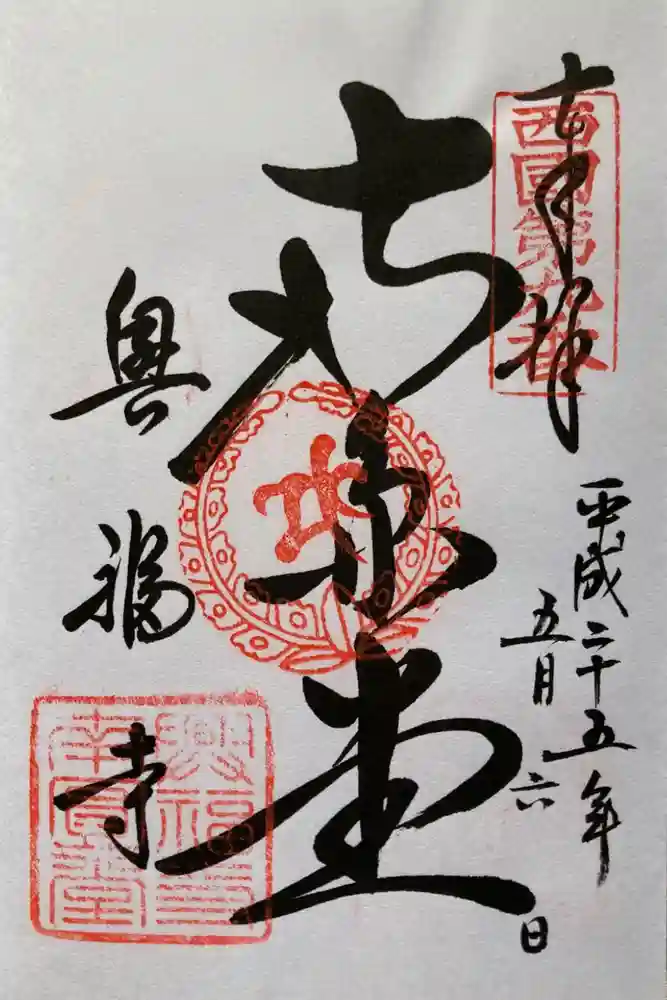 奉拝
西國第九番
平成二十五年
五月六日
南圓堂
興福寺
興福寺
南圓堂